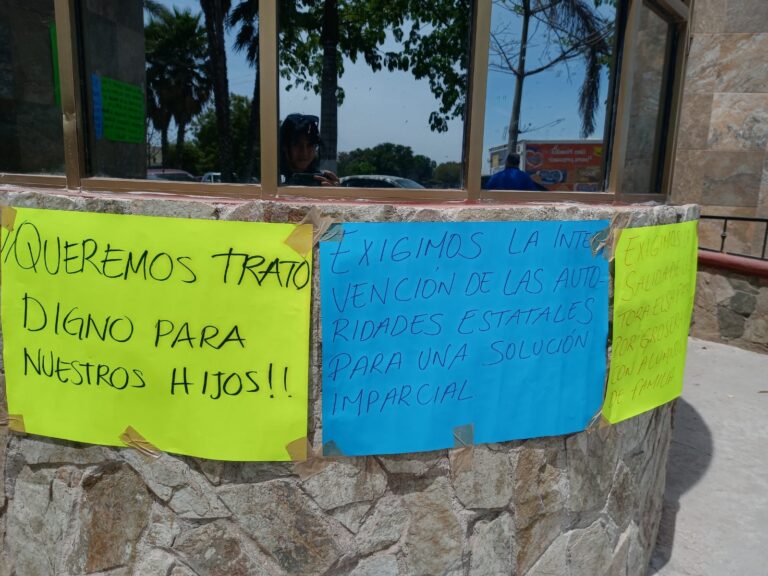 ¡¡QUEREMOS TRATO
DIGNO PARA
NUESTROS HIJOS!!
EXIGIMOS LA INTER
VENCIÓN DE LAS AUTO-
RIDADES ESTATALES
PARA UNA SOLUCIÓN
IMPARCIAL
EXIGIMOS
SALIDA
POR
CON ALUMNOS
DE FAMILIA